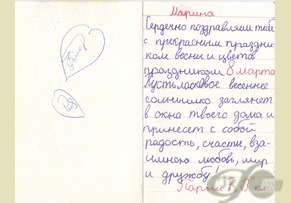 Марина
Сердечно поздравляем тебя
с прекрасным праздни-
ком весны и цветов
праздником 8 марта
Пусть ласковое весеннее
солнышко заглянет
в окна твоего дома и
принесет с собой
радость, счастье, вза-
имную любовь, мир
и дружбу!
Парни кл